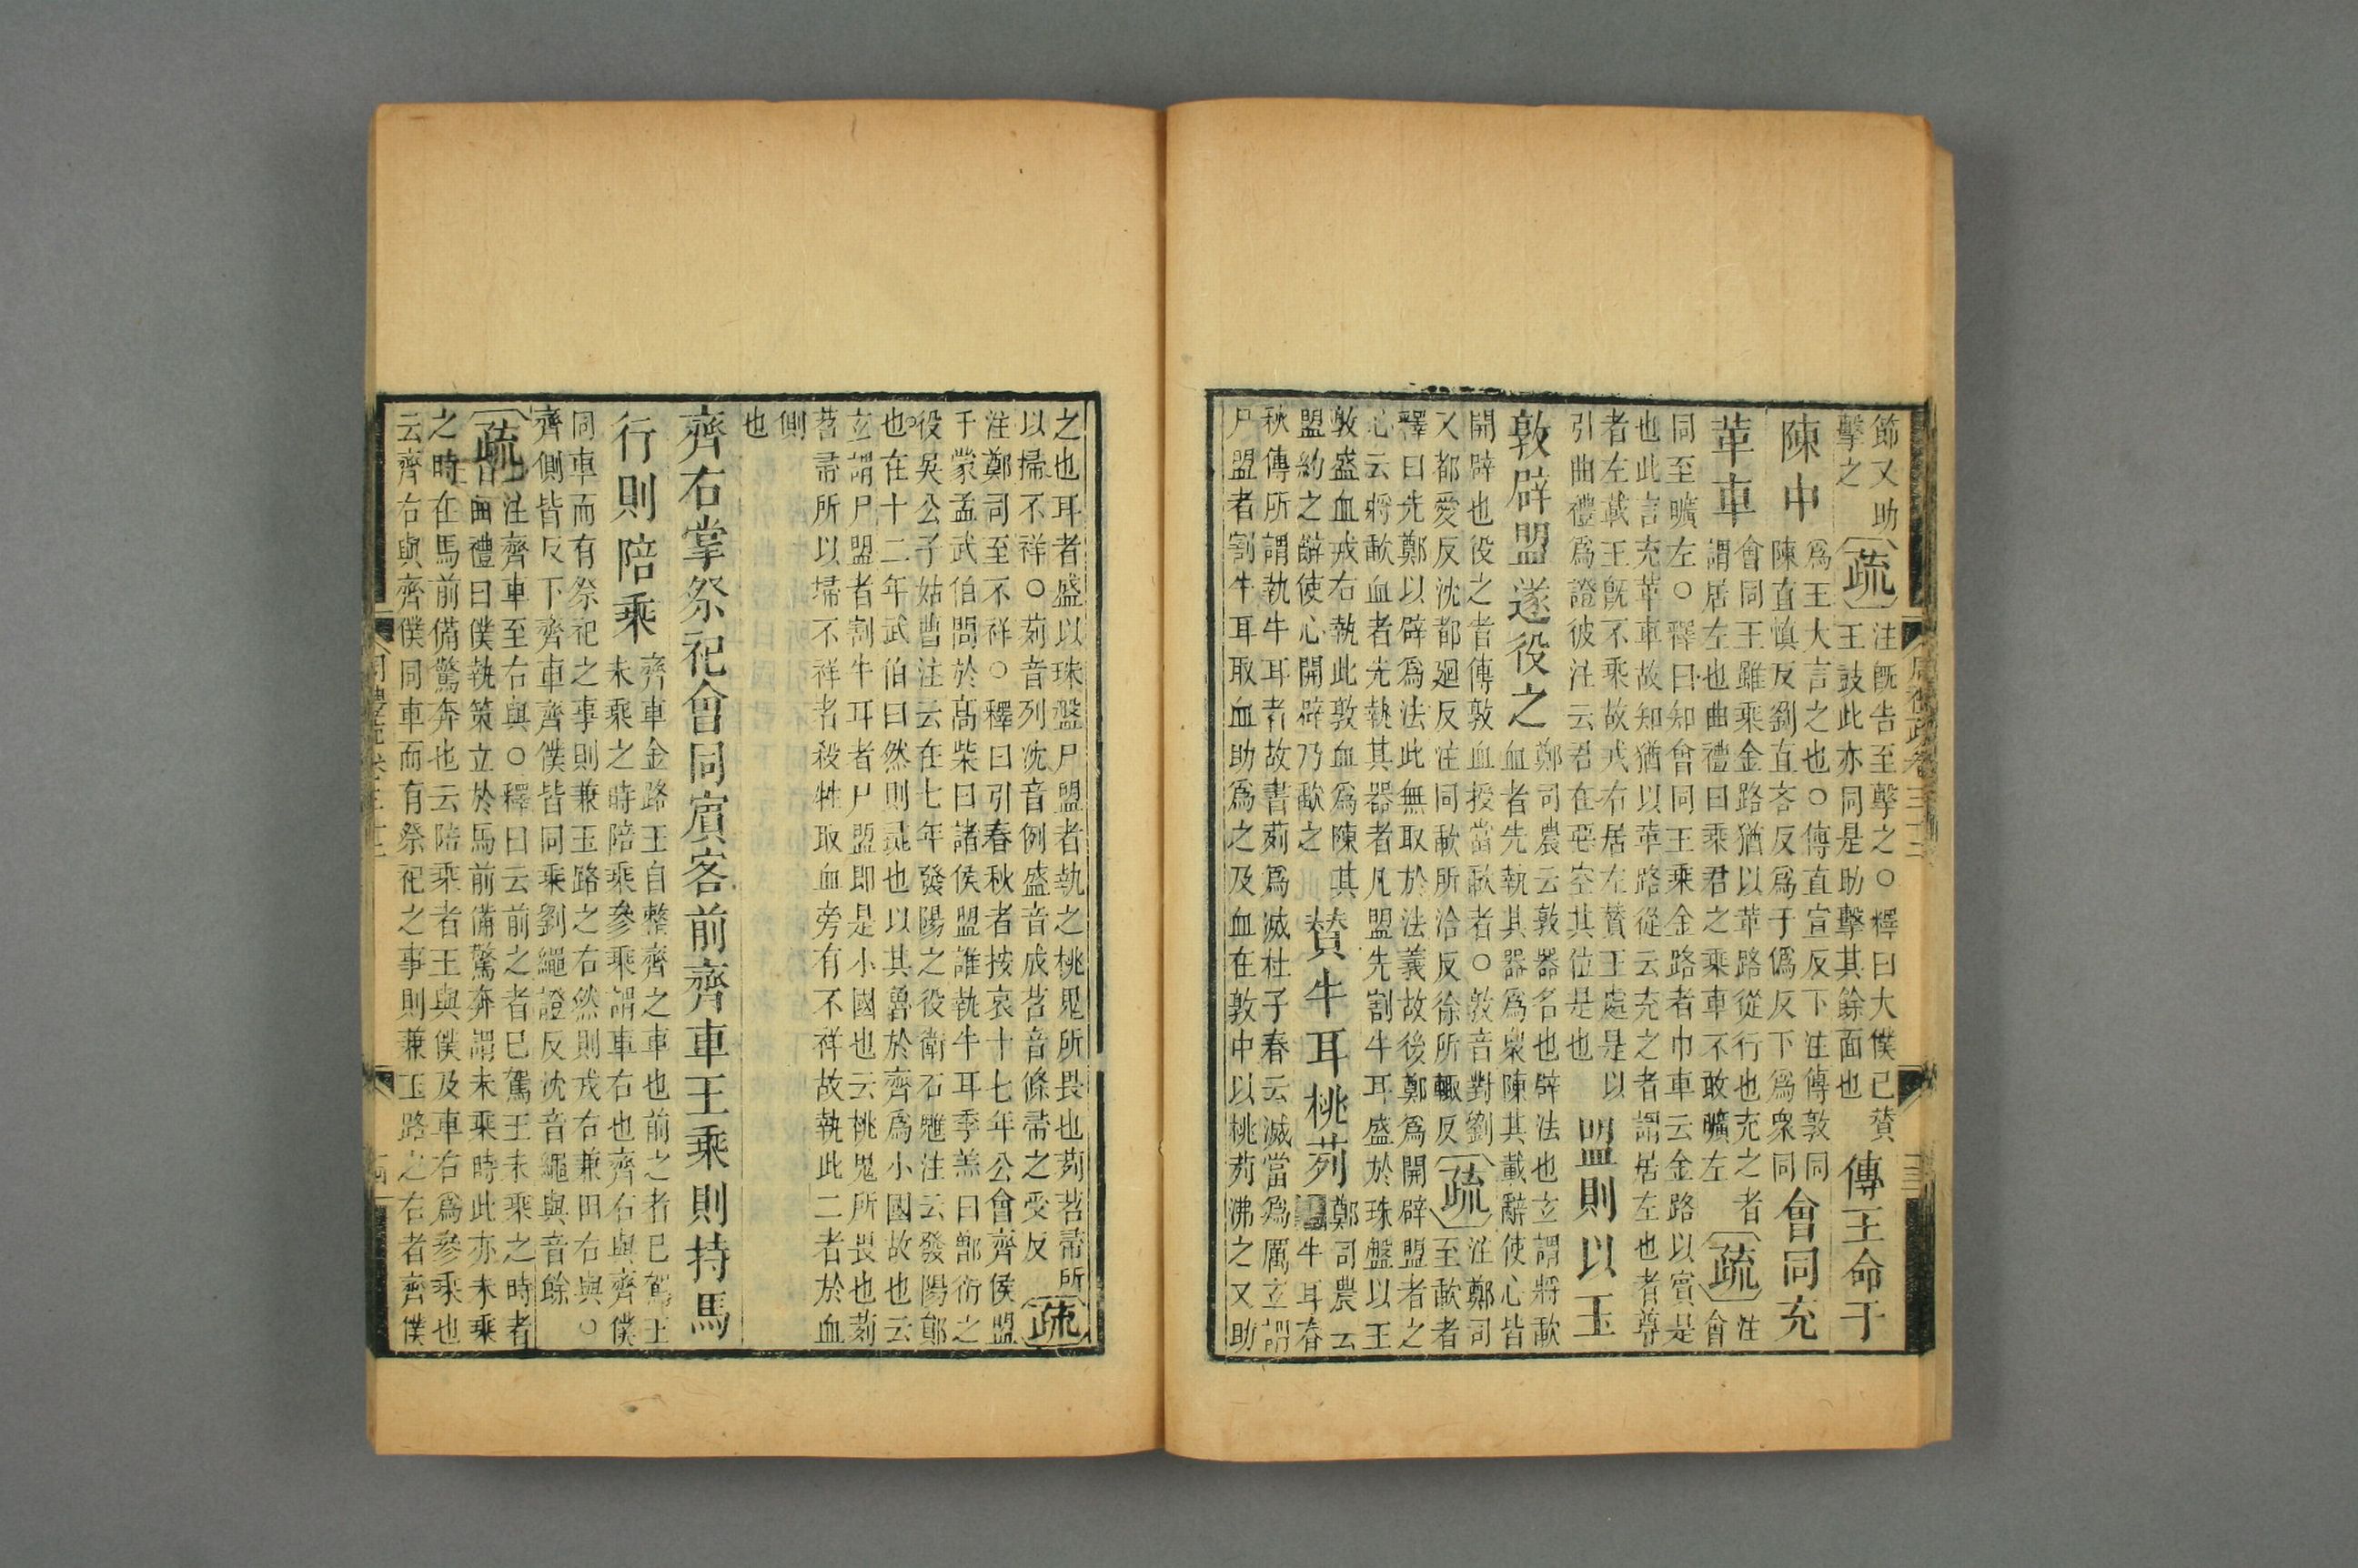 節又助
擊之
疏
注旣告至擊之○釋曰大僕已贊
王鼓此亦同是助擊其餘面也
傳王命于
陳中
爲王大言之也○傳直宣反下注傳敦同
陳直愼反劉直吝反爲于僞反下爲衆同
會同充
革車
會同王雖乘金路猶以革路從行也充之者
謂居左也曲禮曰乘君之乘車不敢曠左
疏
注
會
同至曠左○釋曰知會同王乘金路者巾車云金路以賓是
也此言充革車故知猶以革路從云充之者謂居左也者尊
者左載王旣不乘故戎右居左贊王處是以
引曲禮爲證彼注云君在惡空其位是也
盟則以玉
敦辟盟遂役之
鄭司農云敦器名也辟法也玄謂將歃
血者先執其器爲衆陳其載辭使心皆
開辟也役之者傳敦血授當歃者○敦音對劉
又都愛反沈都廻反注同歃所洽反徐所輙反
疏
注鄭司
至歃者
釋曰先鄭以辟爲法此無取於法義故後鄭爲開辟盟者之
心云將歃血者先執其器者凡盟先割牛耳盛於珠盤以王
敦盛血戎右執此敦血爲陳其
盟約之辭使心開辟乃歃之
贊牛耳桃茢
鄭司農云
牛耳春
秋傳所謂執牛耳者故書茢爲滅杜子春云滅當爲厲玄謂
尸盟者割牛耳取血助爲之及血在敦中以桃茢沸之又助
之也耳者盛以珠盤尸盟者執之桃鬼所畏也茢苕帚所
以掃不祥○茢音列沈音例盛音成苕音條帚之受反
疏
注鄭司至不祥○釋曰引春秋者按哀十七年公會齊侯盟
于蒙孟武伯問於高柴曰諸侯盟誰執牛耳季羔曰鄫衍之
役吳公子姑曹注云在七年發陽之役衛石魋注云發陽鄖
也在十二年武伯曰然則彘也以其魯於齊爲小國故也云
玄謂尸盟者割牛耳者尸盟即是小國也云桃鬼所畏也茢
苕帚所以埽不祥者殺牲取血旁有不祥故執此二者於血
側
也
齊右掌祭祀會同賓客前齊車王乘則持馬
行則陪乘
齊車金路王自整齊之車也前之者已駕王
未乘之時陪乘參乘謂車右也齊右與齊僕
同車而有祭祀之事則兼玉路之右然則戎右兼田右與○
齊側皆反下齊車齊僕皆同乘劉繩證反沈音繩與音餘
疏
注齊車至右與○釋曰云前之者已駕王未乘之時者
曲禮曰僕執策立於馬前備驚奔謂未乘時此亦未乘
之時在馬前備驚奔也云陪乘者王與僕及車右爲參乘也
云齊右與齊僕同車而有祭祀之事則兼玉路之右者齊僕